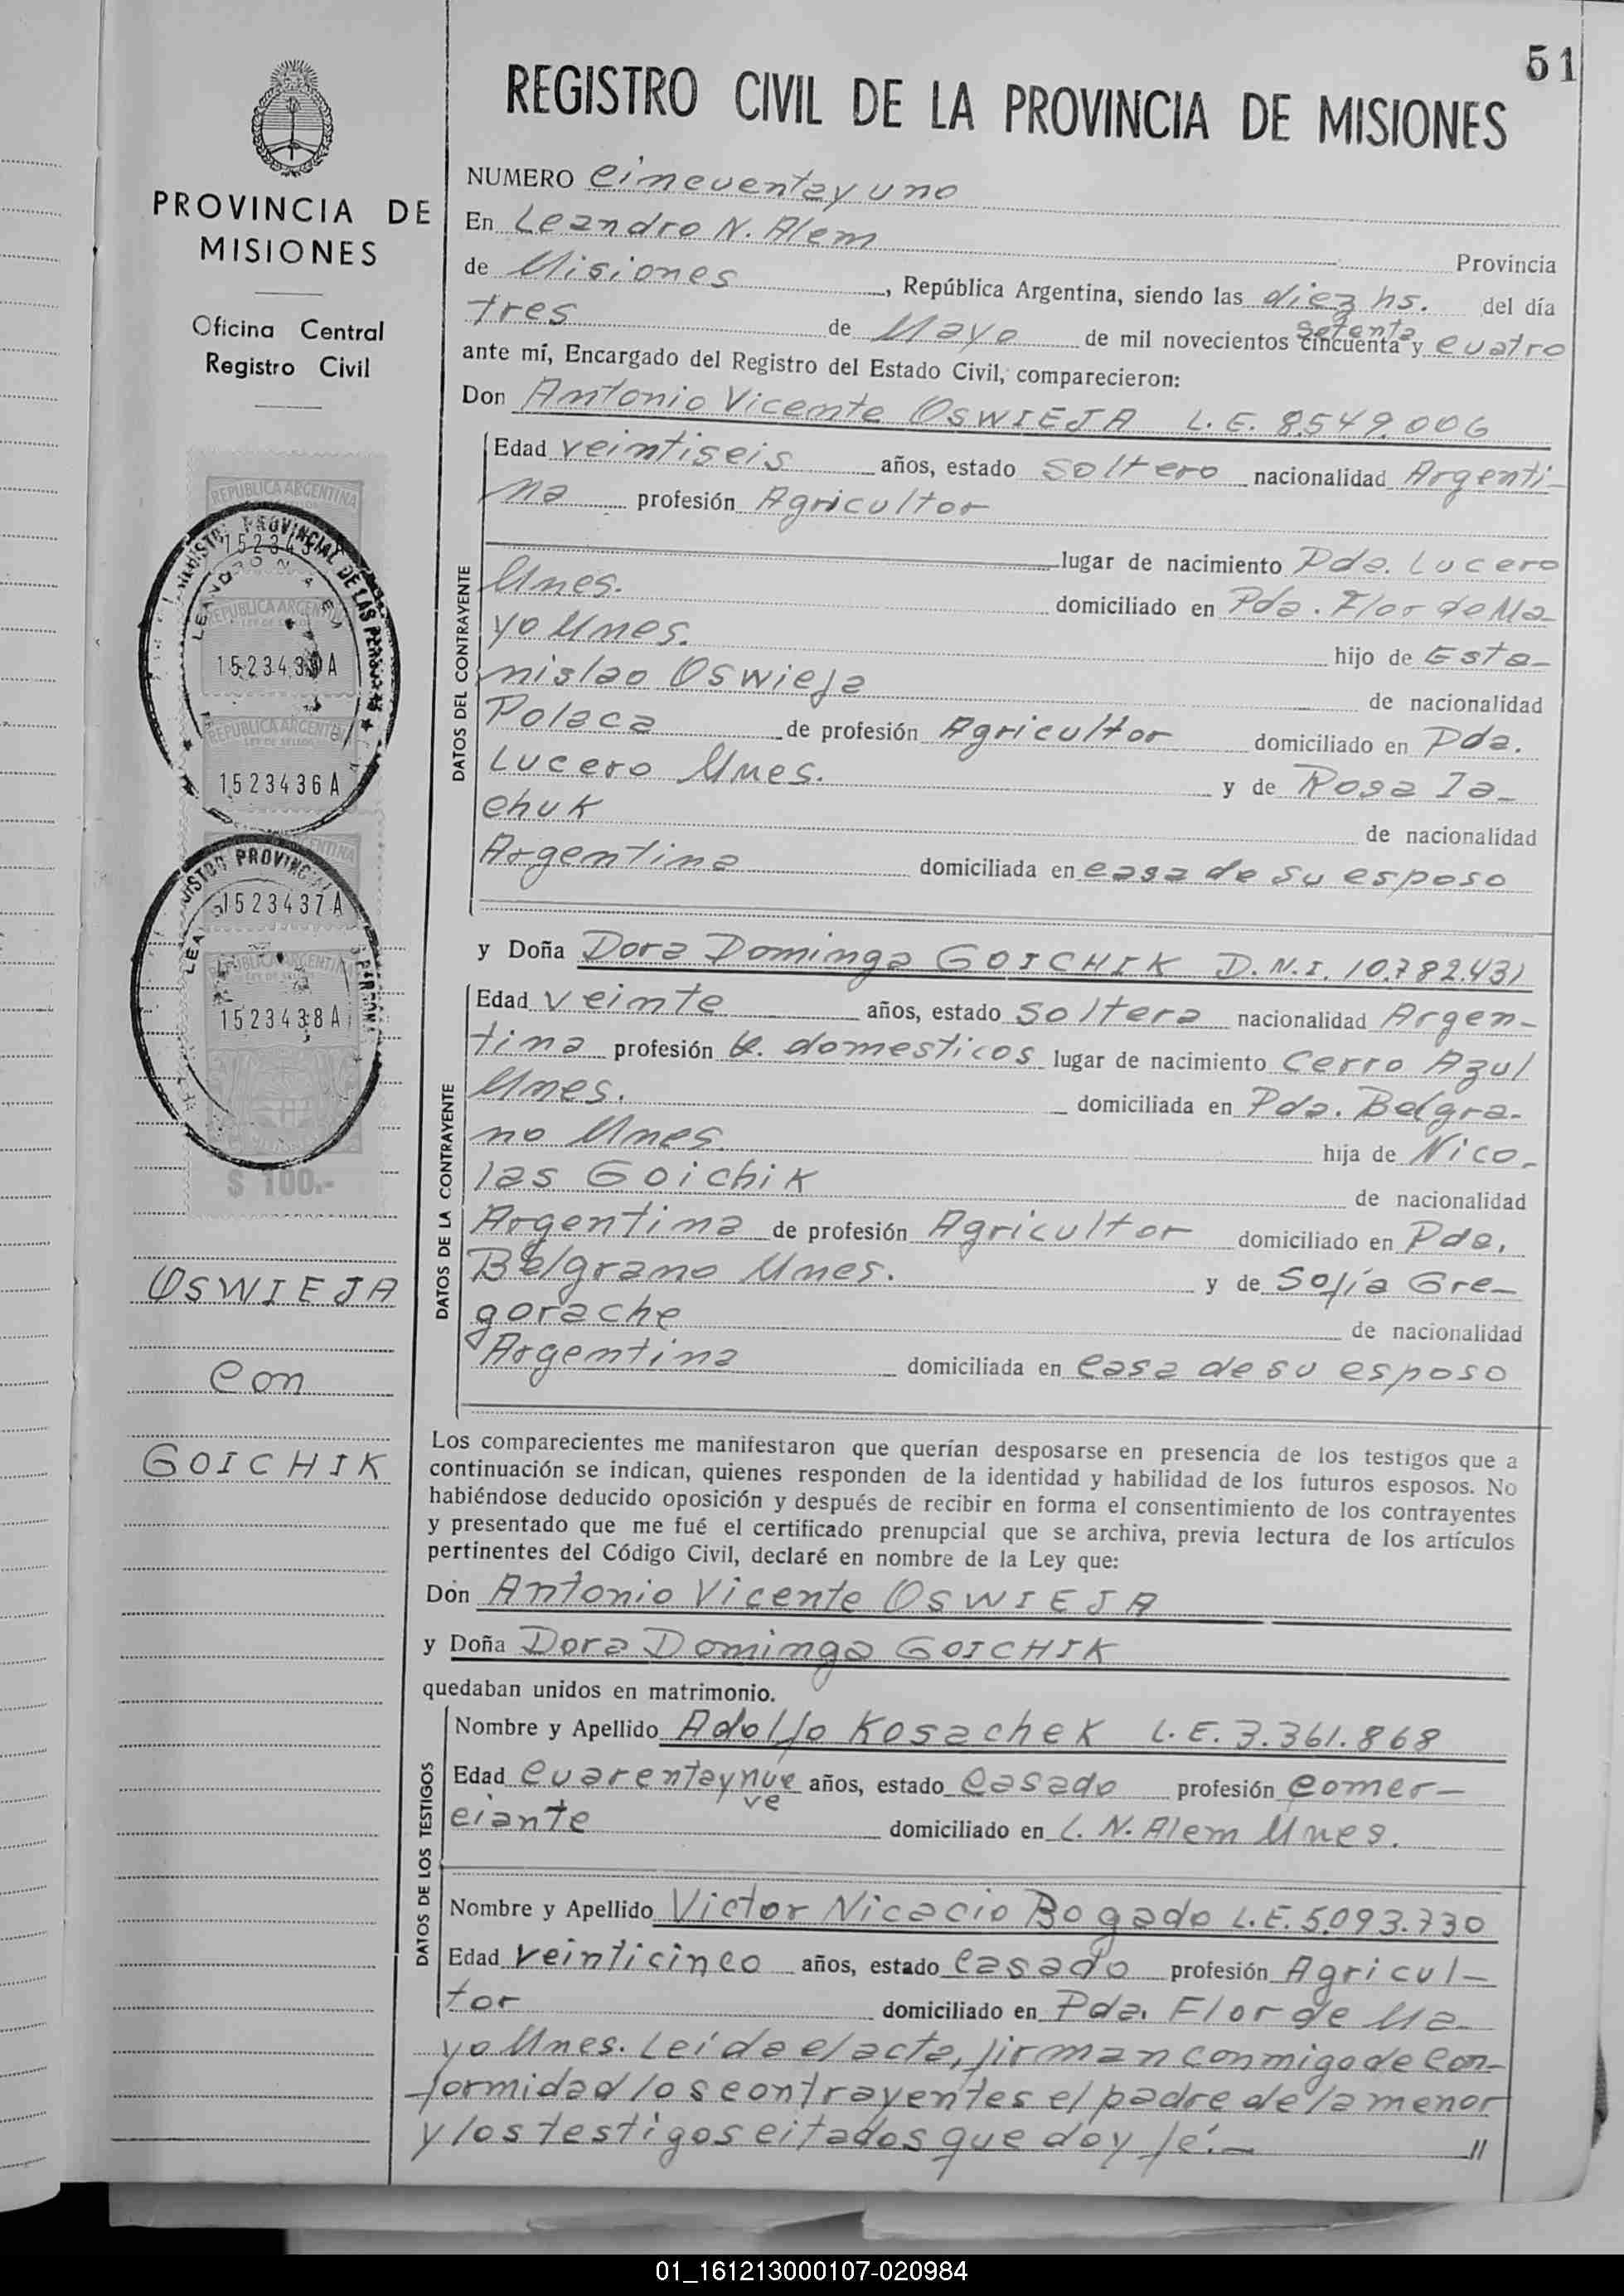 51
REGISTRO CIVIL DE LA PROVINCIA DE MISIONES
PROVINCIA DE
MISIONES
Oficina Central
Registro Civil
NUMERO cincuenta y uno
En Leandro N. Alem Provincia
de Misiones, República Argentina, siendo las diez hs. del día
tres de Mayo de mil novecientos cincuenta setenta y cuatro
ante mí, Encargado del Registro del Estado Civil, comparecieron:
Don Antonio Vicente OSWIEJA L.E. 8.549.006
DATOS DEL CONTRAYENTE
Edad veintiseis años, estado soltero nacionalidad Argenti-
na profesión Agricultor
lugar de nacimiento Pda. Lucero
Mnes. domiciliado en Pda. Flor de Ma-
yo Mnes. hijo de Esta-
nislao Oswieja de nacionalidad
Polaca de profesión Agricultor domiciliado en Pda.
Lucero Mnes. y de Rosa Ia-
chuk de nacionalidad
Argentina domiciliada en casa de su esposo
y Doña Dora Dominga GOICHIK D.N.I. 10.782.431
DATOS DE LA CONTRAYENTE
Edad veinte años, estado soltera nacionalidad Argen-
tina profesión Q. domesticos lugar de nacimiento Cerro Azul
Mnes. domiciliada en Pda. Belgra-
no Mnes. hija de Nico-
las Goichik de nacionalidad
Argentina de profesión Agricultor domiciliado en Pda.
Belgrano Mnes. y de Sofía Gre-
gorache de nacionalidad
Argentina domiciliada en casa de su esposo
Los comparecientes me manifestaron que querían desposarse en presencia de los testigos que a
continuación se indican, quienes responden de la identidad y habilidad de los futuros esposos. No
habiéndose deducido oposición y después de recibir en forma el consentimiento de los contrayentes
y presentado que me fué el certificado prenupcial que se archiva, previa lectura de los artículos
pertinentes del Código Civil, declaré en nombre de la Ley que:
Don Antonio Vicente OSWIEJA
y Doña Dora Dominga GOICHIK
quedaban unidos en matrimonio.
DATOS DE LOS TESTIGOS
Nombre y Apellido Adolfo Kosachek L.E. 3.361.868
Edad cuarentaynueve años, estado casado profesión comer-
ciante domiciliado en L. N. Alem Mnes.
Nombre y Apellido Victor Nicacio Bogado L.E. 5.093.730
Edad veinticinco años, estado casado profesión Agricul-
tor domiciliado en Pda. Flor de Ma-
yo Mnes. Leída el acta, firman conmigo de con-
formidad los contrayentes el padre de la menor
y los testigos citados que doy fé.- //
REPUBLICA ARGENTINA
REPUBLICA ARGENTINA
LEY DE SELLOS
1523435A
REPUBLICA ARGENTINA
LEY DE SELLOS
1523436A
1523437A
REPUBLICA ARGENTINA
LEY DE SELLOS
1523438A
$ 100.-
OSWIEJA
con
GOICHIK
01_161213000107-020984